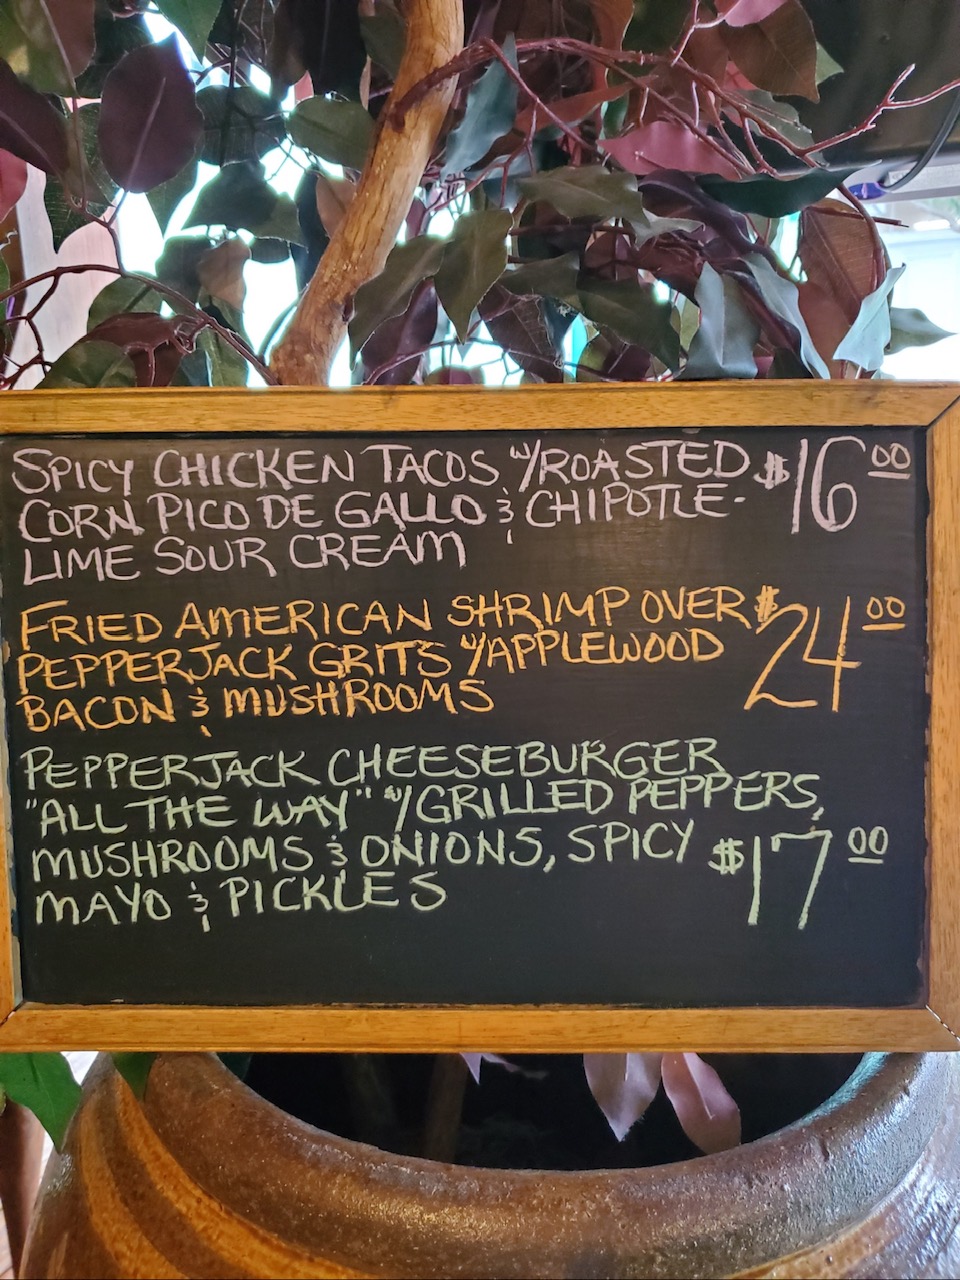 SPICY CHICKEN TACOS W/ROASTED $16 00
CORN PICO DE GALLO & CHIPOTLE-
LIME SOUR CREAM
FRIED AMERICAN SHRIMP OVER $24 00
PEPPERJACK GRITS W/APPLEWOOD
BACON & MUSHROOMS
PEPPERJACK CHEESEBURGER
"ALL THE WAY" W/GRILLED PEPPERS,
MUSHROOMS & ONIONS, SPICY $17 00
MAYO & PICKLES